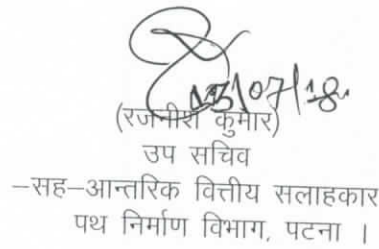 13/07/18
(रजनीश कुमार)
उप सचिव
-सह-आन्तरिक वित्तीय सलाहकार
पथ निर्माण विभाग, पटना ।